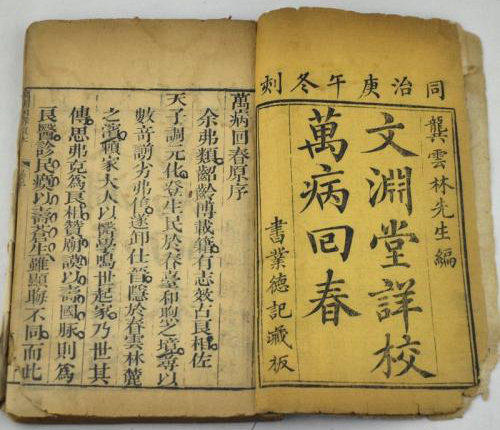 同治庚午冬刻
龔雲林先生編
文淵堂詳校
萬病回春
書業德記藏板
萬病回春原序
余弗類齠齡博載籍有志效古良相佐
天子調元化登生民於春臺和煦之境以
數奇謭劣弗遂卸仕晉隱於雲林麓
之濱頋家大人以醫學鳴世起家乃世其
傳思弗克為良相贊廟謨以壽國脉則為
良醫診民瘼以壽蒼生雖顯晦不同而此